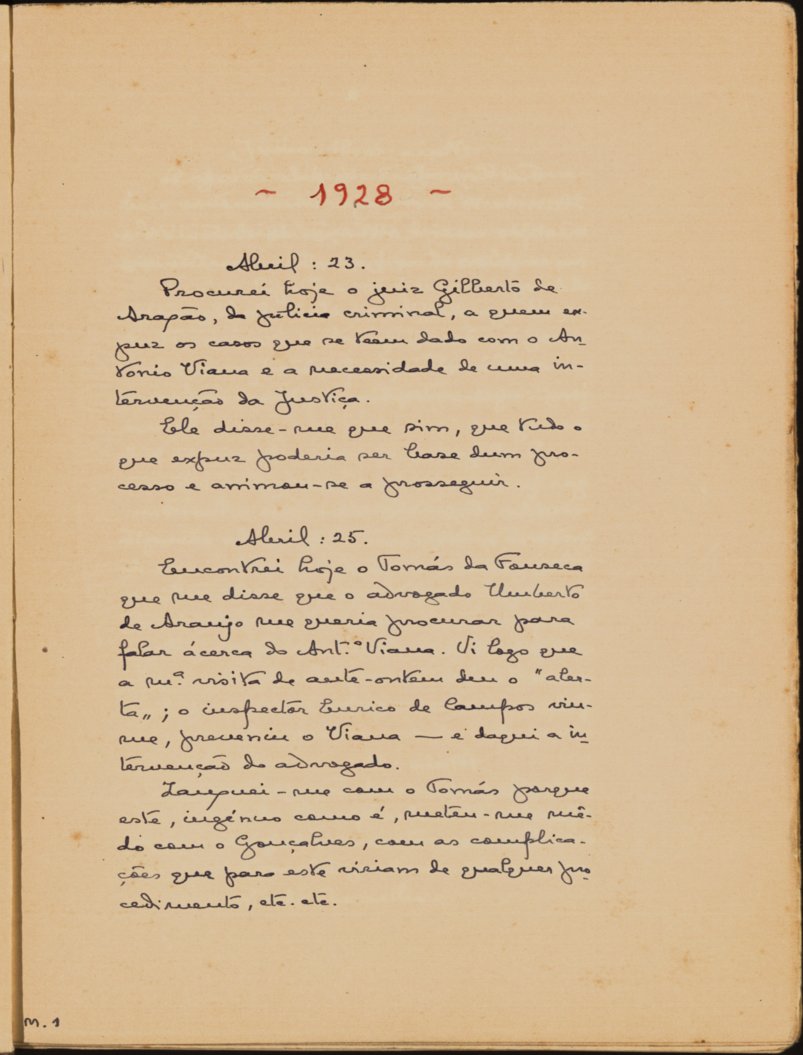 ~ 1928 ~
Abril : 23.
Procurei hoje o juiz Gilberto de
Aragão, da policia criminal, a quem ex-
puz os casos que se teem dado com o An-
tonio Viana e a necessidade de uma in-
tervenção da Justiça.
Ele disse-me que sim, que tudo o
que expuz poderia ser base dum pro-
cesso e animou-se a prosseguir.
Abril : 25.
Encontrei hoje o Tomás da Fonseca
que me disse que o advogado Umberto
de Araujo me queria procurar para
falar ácerca do Ant.º Viana. Vi logo que
a m.ª visita de ante-ontem deu o "aler-
ta„ ; o inspectôr Eurico de Campos viu-
me, preveniu o Viana — e daqui a in-
tervenção do advogado.
Zanguei-me com o Tomás porque
este, ingénuo como é, meteu-me mê-
do com o Gonçalves, com as complica-
ções que para este viriam de qualquer pro-
cedimento, etc. etc.
M. 1